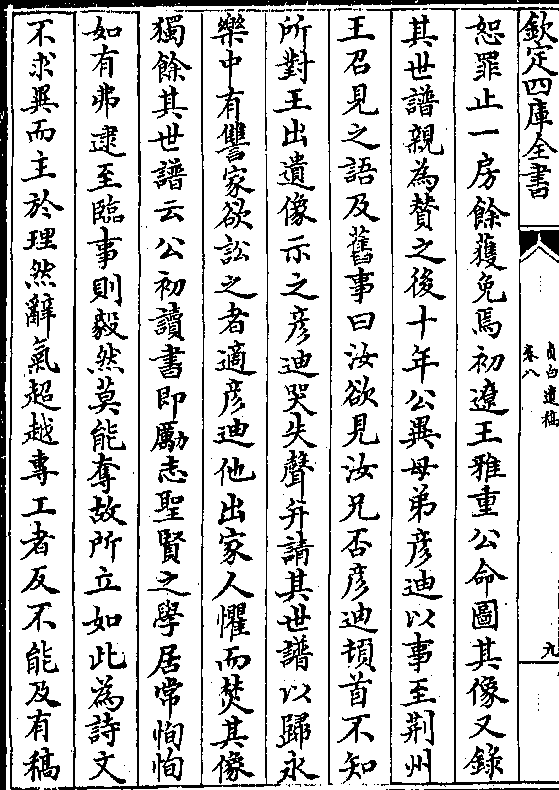 欽定四庫全書
貞白遺稿
卷八
九
恕罪止一房餘獲免焉初遼王雅重公命圖其像又錄
其世譜親為贊之後十年公異母弟彦迪以事至荆州
王召見之語及舊事曰汝欲見汝兄否彦迪頓首不知
所對王出遺像示之彦迪哭失聲并請其世譜以歸永
樂中有讐家欲訟之者適彦迪他出家人懼而焚其像
獨餘其世譜云公初讀書即勵志聖賢之學居常恂恂
如有弗逮至臨事則毅然莫能奪故所立如此為詩文
不求異而主於理然辭氣超越専工者反不能及有稿